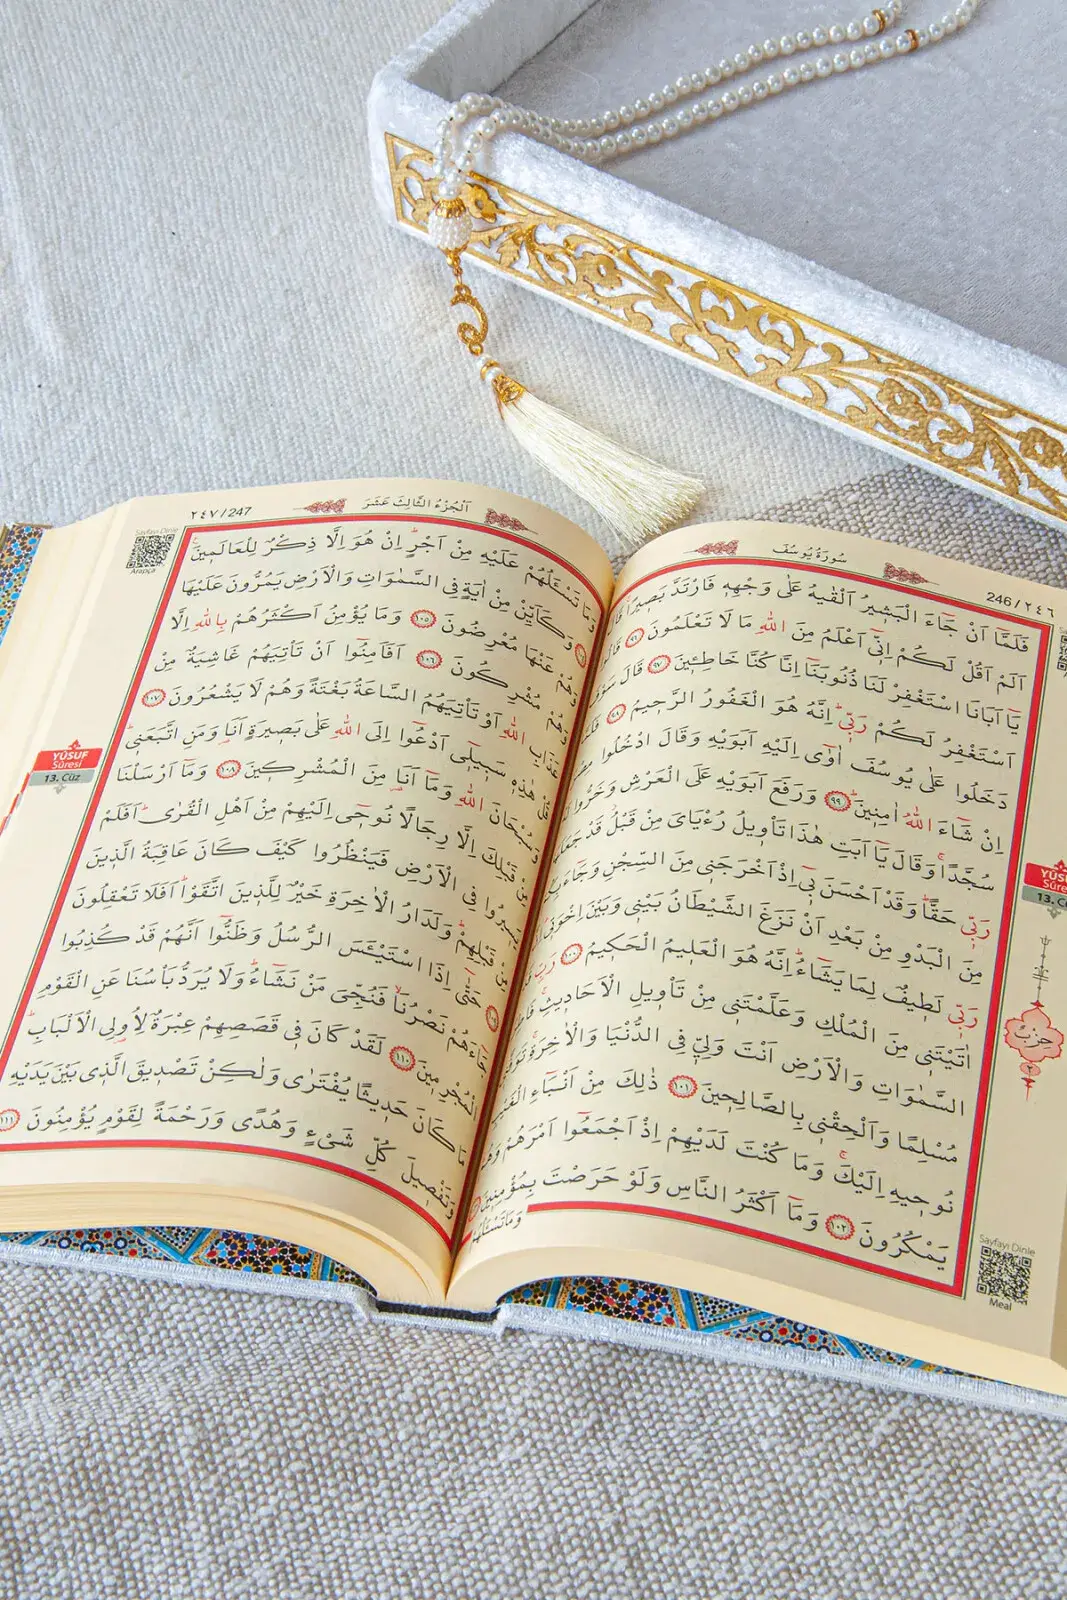 سُورَةُ يُوسُفَ
246 / ٢٤٦
فَلَمَّٓا اَنْ جَٓاءَ الْبَش۪يرُ اَلْقٰيهُ عَلٰى وَجْهِه۪ فَارْتَدَّ بَص۪يرًاۚ قَالَ
اَلَمْ اَقُلْ لَكُمْ اِنّ۪ٓي اَعْلَمُ مِنَ اللّٰهِ مَا لَا تَعْلَمُونَ ٩٦ قَالُوا
يَٓا اَبَانَا اسْتَغْفِرْ لَنَا ذُنُوبَنَٓا اِنَّا كُنَّا خَاطِـ۪ٔينَ ٩٧ قَالَ سَوْفَ
اَسْتَغْفِرُ لَكُمْ رَبّ۪يۜ اِنَّهُ هُوَ الْغَفُورُ الرَّح۪يمُ ٩٨ فَلَمَّا
دَخَلُوا عَلٰى يُوسُفَ اٰوٰٓى اِلَيْهِ اَبَوَيْهِ وَقَالَ ادْخُلُوا
اِنْ شَٓاءَ اللّٰهُ اٰمِن۪ينَۜ ٩٩ وَرَفَعَ اَبَوَيْهِ عَلَى الْعَرْشِ وَخَرُّوا
سُجَّدًاۚ وَقَالَ يَٓا اَبَتِ هٰذَا تَأْو۪يلُ رُءْيَايَ مِنْ قَبْلُۘ قَدْ جَعَلَهَا
رَبّ۪ي حَقًّاۜ وَقَدْ اَحْسَنَ ب۪ٓي اِذْ اَخْرَجَن۪ي مِنَ السِّجْنِ وَجَٓاءَ
مِنَ الْبَدْوِ مِنْ بَعْدِ اَنْ نَزَغَ الشَّيْطَانُ بَيْن۪ي وَبَيْنَ اِخْوَت۪يۜ
رَبّ۪ي لَط۪يفٌ لِمَا يَشَٓاءُۜ اِنَّهُ هُوَ الْعَل۪يمُ الْحَك۪يمُ ١٠٠ رَبِّ
اٰتَيْتَن۪ي مِنَ الْمُلْكِ وَعَلَّمْتَن۪ي مِنْ تَأْو۪يلِ الْاَحَاد۪يثِۚ
السَّمٰوَاتِ وَالْاَرْضِ اَنْتَ وَلِيّ۪ فِي الدُّنْيَا وَالْاٰخِرَةِۚ
مُسْلِمًا وَاَلْحِقْن۪ي بِالصَّالِح۪ينَ ١٠١ ذٰلِكَ مِنْ اَنْبَٓاءِ الْغَيْبِ
نُوح۪يهِ اِلَيْكَۚ وَمَا كُنْتَ لَدَيْهِمْ اِذْ اَجْمَعُٓوا اَمْرَهُمْ وَهُمْ
يَمْكُرُونَ ١٠٢ وَمَٓا اَكْثَرُ النَّاسِ وَلَوْ حَرَصْتَ بِمُؤْمِن۪ينَ
وَمَا تَسْـَٔلُهُمْ
حِزْبٌ
٢
YÛSUF
Sûresi
13. Cüz
Sayfayı Dinle
Meal
اَلْجُزْءُ الثَّالِثَ عَشَرَ
٢٤٧ / 247
وَمَا تَسْـَٔلُهُمْ عَلَيْهِ مِنْ اَجْرٍۜ اِنْ هُوَ اِلَّا ذِكْرٌ لِلْعَالَم۪ينَ۟
وَكَاَيِّنْ مِنْ اٰيَةٍ فِي السَّمٰوَاتِ وَالْاَرْضِ يَمُرُّونَ عَلَيْهَا
وَهُمْ عَنْهَا مُعْرِضُونَ ١٠٥ وَمَا يُؤْمِنُ اَكْثَرُهُمْ بِاللّٰهِ اِلَّا
وَهُمْ مُشْرِكُونَ ١٠٦ اَفَاَمِنُٓوا اَنْ تَأْتِيَهُمْ غَاشِيَةٌ مِنْ
عَذَابِ اللّٰهِ اَوْ تَأْتِيَهُمُ السَّاعَةُ بَغْتَةً وَهُمْ لَا يَشْعُرُونَ ١٠٧
قُلْ هٰذِه۪ سَب۪يل۪ٓي اَدْعُٓوا اِلَى اللّٰهِ عَلٰى بَص۪يرَةٍ اَنَا۬ وَمَنِ اتَّبَعَن۪يۜ
وَسُبْحَانَ اللّٰهِ وَمَٓا اَنَا۬ مِنَ الْمُشْرِك۪ينَ ١٠٨ وَمَٓا اَرْسَلْنَا
مِنْ قَبْلِكَ اِلَّا رِجَالًا نُوح۪ٓي اِلَيْهِمْ مِنْ اَهْلِ الْقُرٰىۜ اَفَلَمْ
يَس۪يرُوا فِي الْاَرْضِ فَيَنْظُرُوا كَيْفَ كَانَ عَاقِبَةُ الَّذ۪ينَ
مِنْ قَبْلِهِمْۜ وَلَدَارُ الْاٰخِرَةِ خَيْرٌ لِلَّذ۪ينَ اتَّقَوْاۜ اَفَلَا تَعْقِلُونَ
حَتّٰٓى اِذَا اسْتَيْـَٔسَ الرُّسُلُ وَظَنُّٓوا اَنَّهُمْ قَدْ كُذِبُوا
جَٓاءَهُمْ نَصْرُنَاۙ فَنُجِّيَ مَنْ نَشَٓاءُۜ وَلَا يُرَدُّ بَأْسُنَا عَنِ الْقَوْمِ
الْمُجْرِم۪ينَ ١١٠ لَقَدْ كَانَ ف۪ي قَصَصِهِمْ عِبْرَةٌ لِاُو۬لِي الْاَلْبَابِۜ
مَا كَانَ حَد۪يثًا يُفْتَرٰى وَلٰكِنْ تَصْد۪يقَ الَّذ۪ي بَيْنَ يَدَيْهِ
وَتَفْص۪يلَ كُلِّ شَيْءٍ وَهُدًى وَرَحْمَةً لِقَوْمٍ يُؤْمِنُونَ ١١١
Sayfayı Dinle
Arapça
YÛSUF
Sûresi
13. Cüz